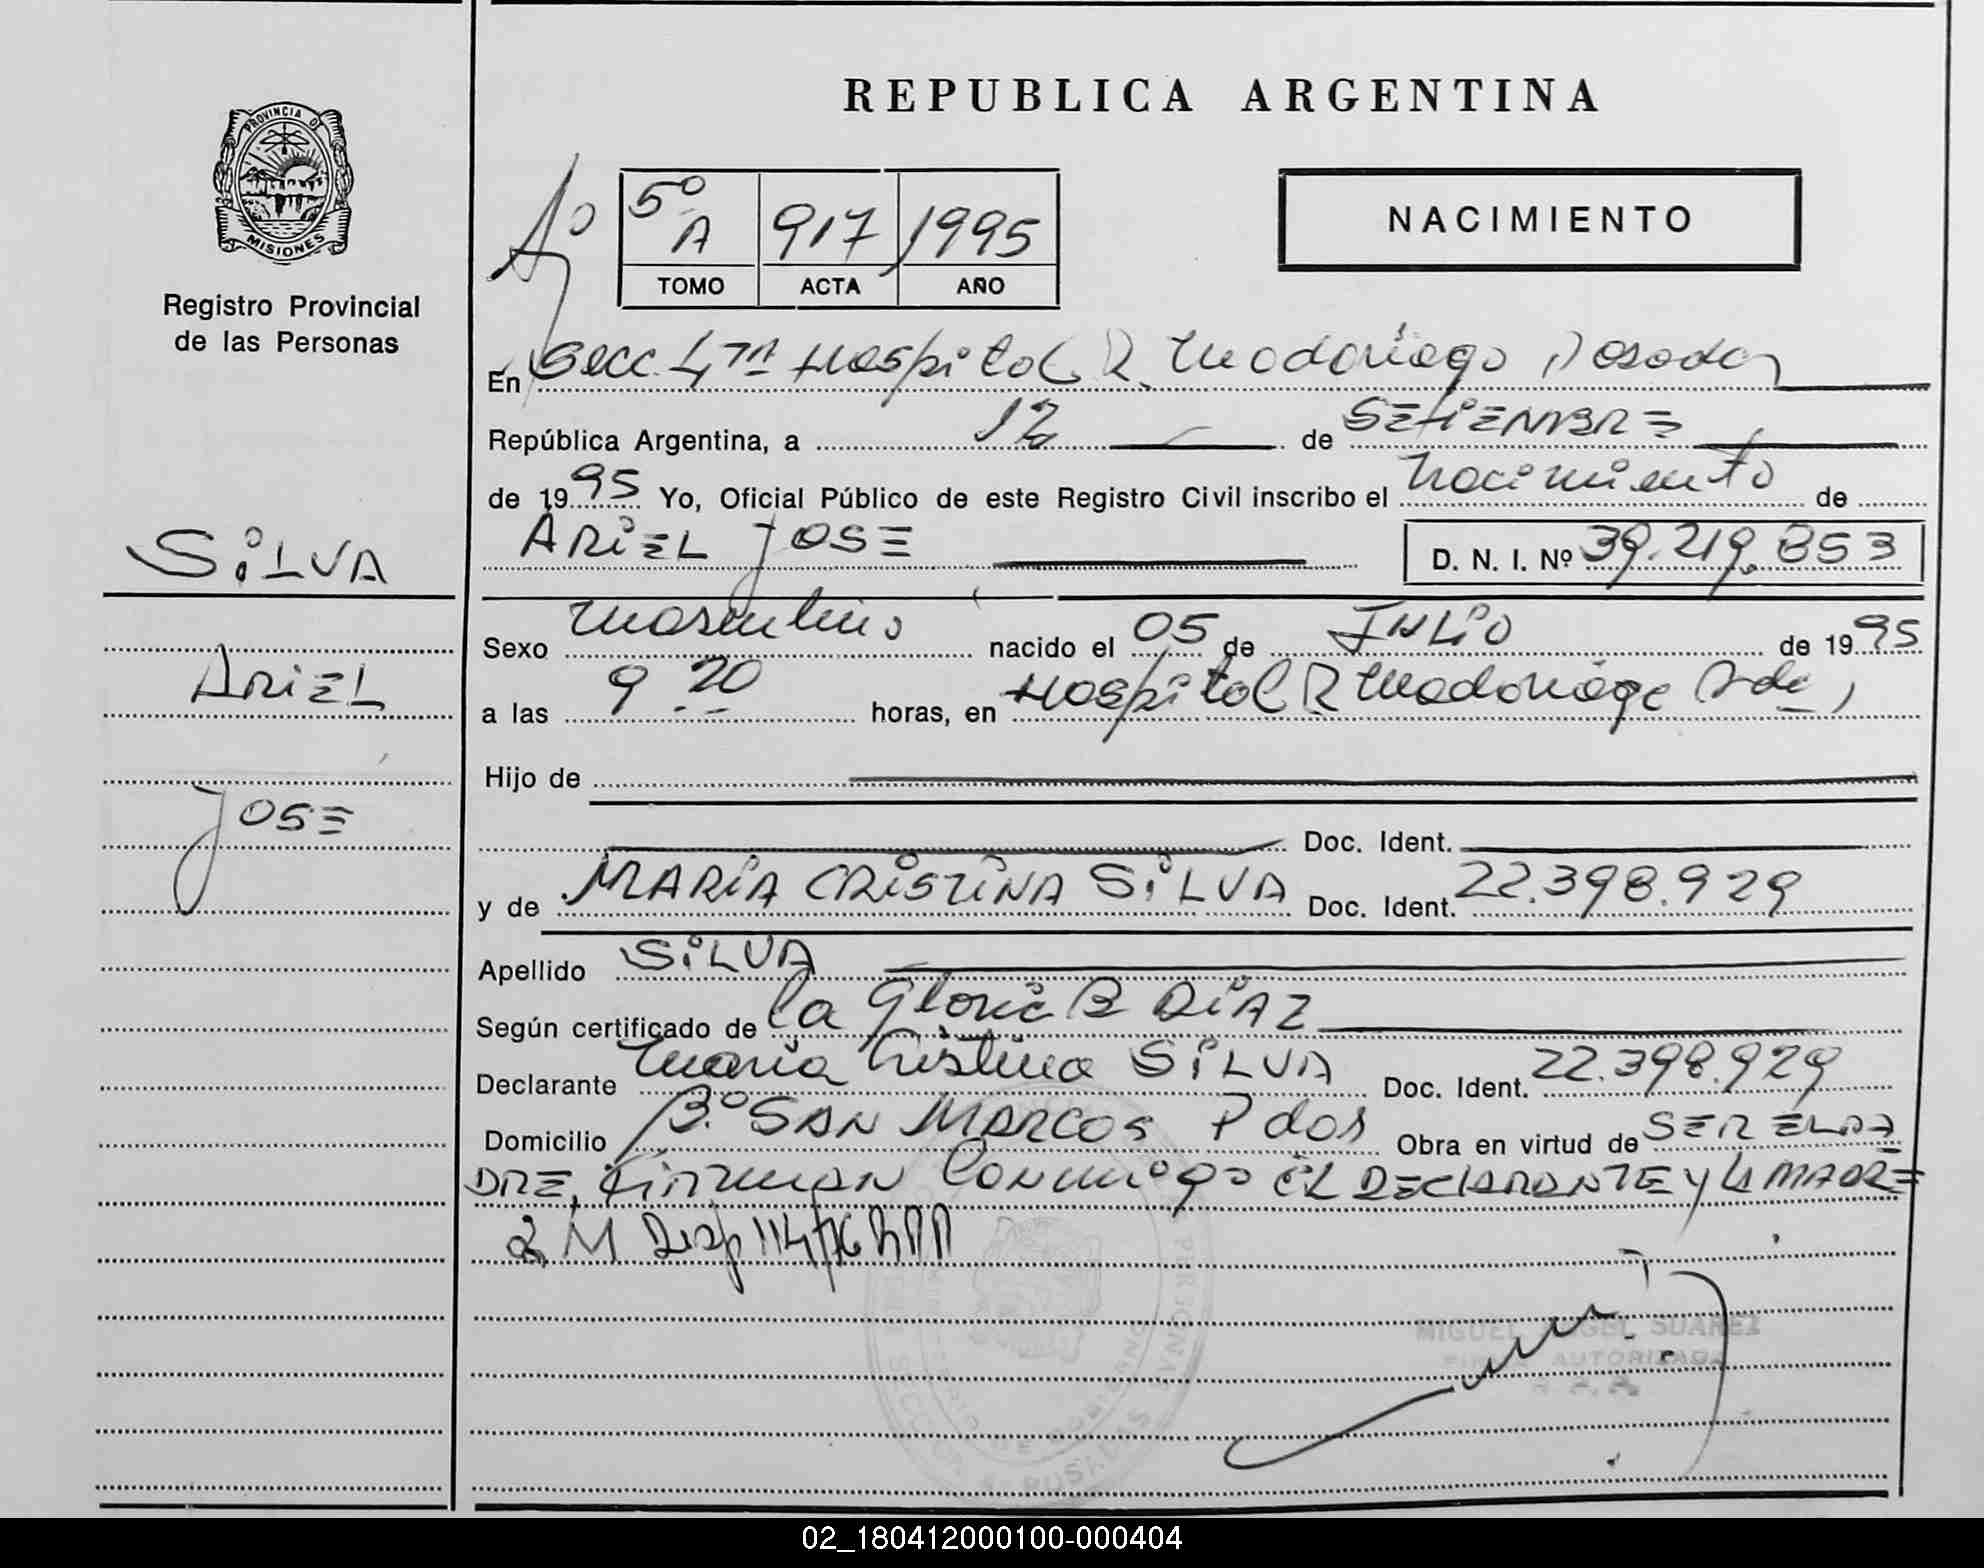 REPUBLICA ARGENTINA
PROVINCIA DE
MISIONES
Registro Provincial
de las Personas
Aº
5º A 917 1995
TOMO ACTA AÑO
NACIMIENTO
En Secc. 4ta Hospital R. Madariaga Posadas
República Argentina, a 12 de SETIEMBRE
de 1995 Yo, Oficial Público de este Registro Civil inscribo el nacimiento de
ARIEL JOSE D. N. I. Nº 39.219.853
SILVA
ARIEL
JOSE
Sexo masculino nacido el 05 de JULIO de 1995
a las 9 20 horas, en Hospital R Madariaga Pdas
Hijo de
Doc. Ident.
y de MARIA CRISTINA SILVA Doc. Ident. 22.398.929
Apellido SILVA
Según certificado de la Gloria B DIAZ
Declarante Maria Cristina SILVA Doc. Ident. 22.398.929
Domicilio Bº SAN MARCOS Pdas Obra en virtud de SER EL PA
DRE, firman conmigo EL DECLARANTE Y LA MADRE
2 M Disp 114/76
MIGUEL ANGEL SUAREZ
FIRMA AUTORIZADA
02_180412000100-000404